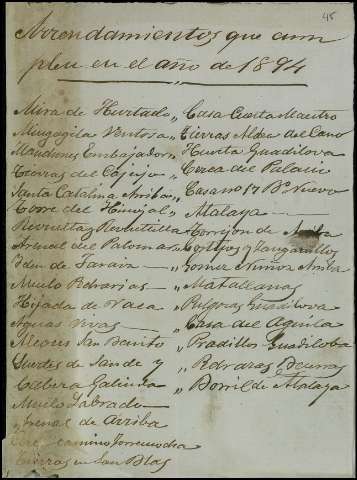 45
Arrendamientos que cum
plen en el año de 1894
Mira de Hurtado " Casa Cuarta Maestro
Mingagila Ventosa " Tierras Aldea del Cano
Mandrones Embajador " Huerta Guadiloba
Tierras del Cojujo " Cerca del Palacio
Santa Catalina Arriba " Casa no 17 Bo Nuevo
Torre del Hinojal " Atalaya
Revuelta y Revueltilla " Torrejon de Arriba
Arenal del Palomar " y Zangarillos
de Zaraiz " Torna Nuñez Arriba
Muelo Pedrarias " Matallanas
Hijada de Vaca " Pulgosas Guadilova
Aguas Vivas " Casa del Aguila
San Benito " Pradillos Guadiloba
Suertes de Sande y " Pedrazas
Cabeza Galinda " Borril de Atalaya
Muelo Labrado
Arenas de Arriba
camino Torremocha
Tierras en San Blas